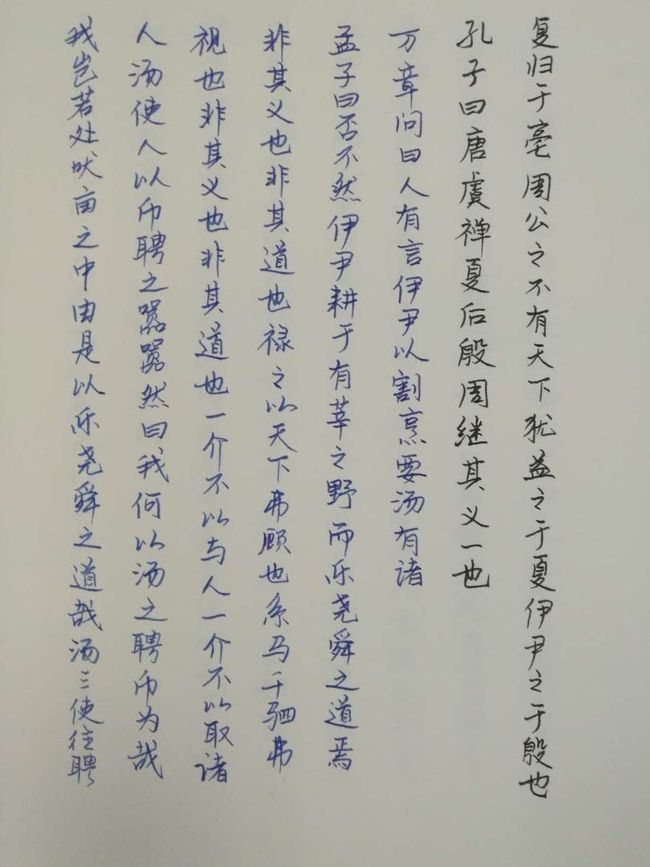 复归于亳周公之不有天下犹益之于夏伊尹之于殷也
孔子曰唐虞禅夏后殷周继其义一也
万章问曰人有言伊尹以割烹要汤有诸
孟子曰否不然伊尹耕于有莘之野而乐尧舜之道焉
非其义也非其道也禄之以天下弗顾也系马千驷弗
视也非其义也非其道也一介不以与人一介不以取诸
人汤使人以币聘之嚣嚣然曰我何以汤之聘币为哉
我岂若处畎亩之中由是以乐尧舜之道哉汤三使往聘